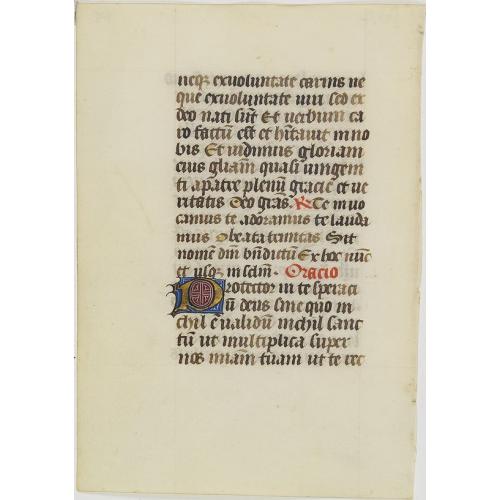 neqꝫ exuoluntate carnis ne
que exuoluntate uiri sed ex
deo nati sūt Et uerbum ca
ro factū est et hītauit in no
bis Et uidimus gloriam
eius gliam quasi unigeni
ti apatre plenū gracie et ue
ritatis Deo gras. R Te inuo
camus te adoramus te lauda
mus O beata trinitas Sit
nomē dm̄ bn̄dictū Ex hoc nūc
et usqꝫ in sclm̄. Oracio
Protector in te speranci
ū deus sine quo in
chil ē ualidū nichil sanc
tū ut multiplica super
nos miam̄ tuam ut te rec